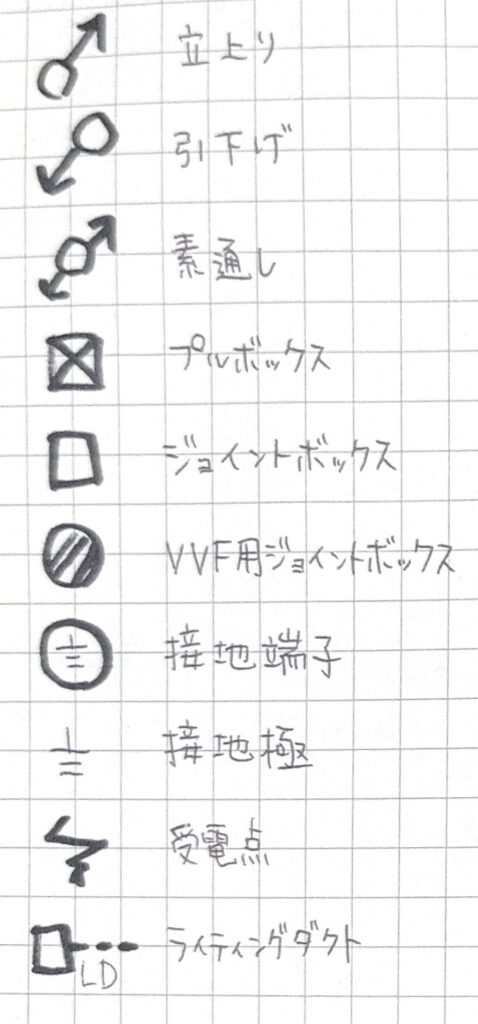 立上り
引下げ
素通し
プルボックス
ジョイントボックス
VVF用ジョイントボックス
接地端子
接地極
受電点
ライティングダクト
LD